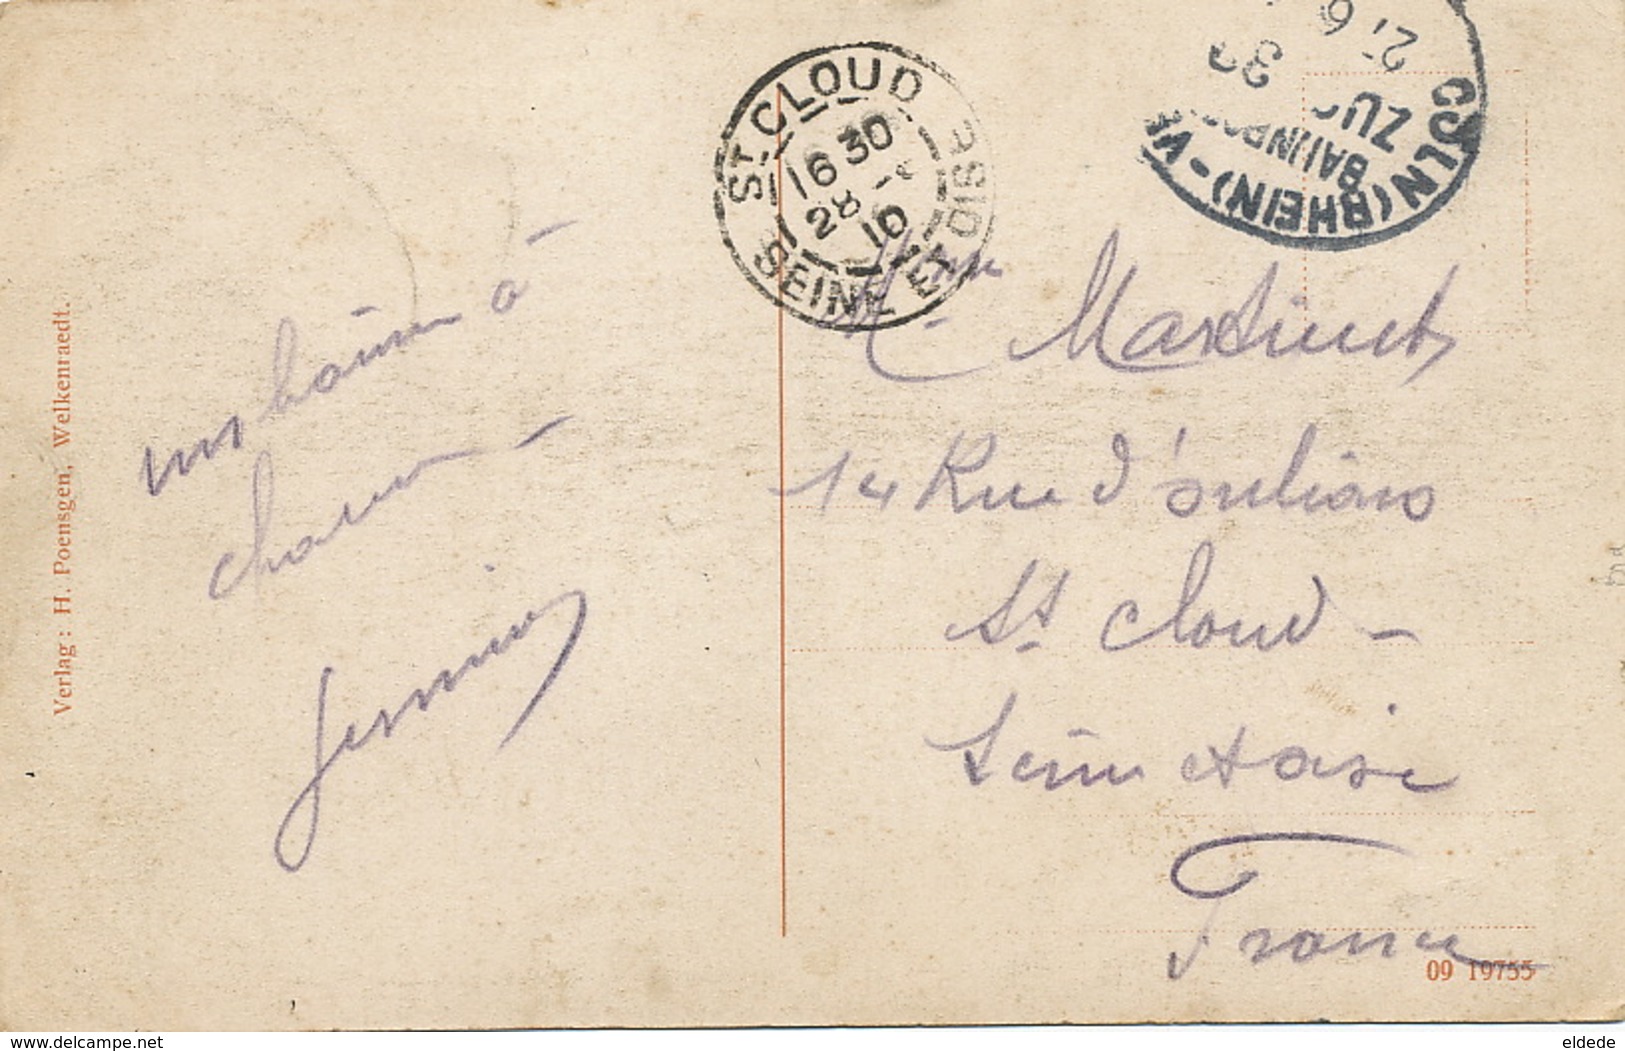 Verlag: H. Poensgen, Welkenraedt.
baisers à
chacun
ST CLOUD
16 30
28
10
SEINE ET OISE
CÖLN (RHEIN) - V
ZUG
27 6
Mme Martinet
14 Rue d'Orléans
St Cloud -
Seine et Oise
France
09 19755
delcampe.net
eldede